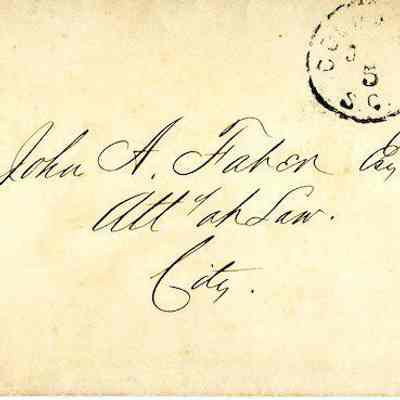 John A. Faber Esq
Att'y at Law.
City.
5
S.C.